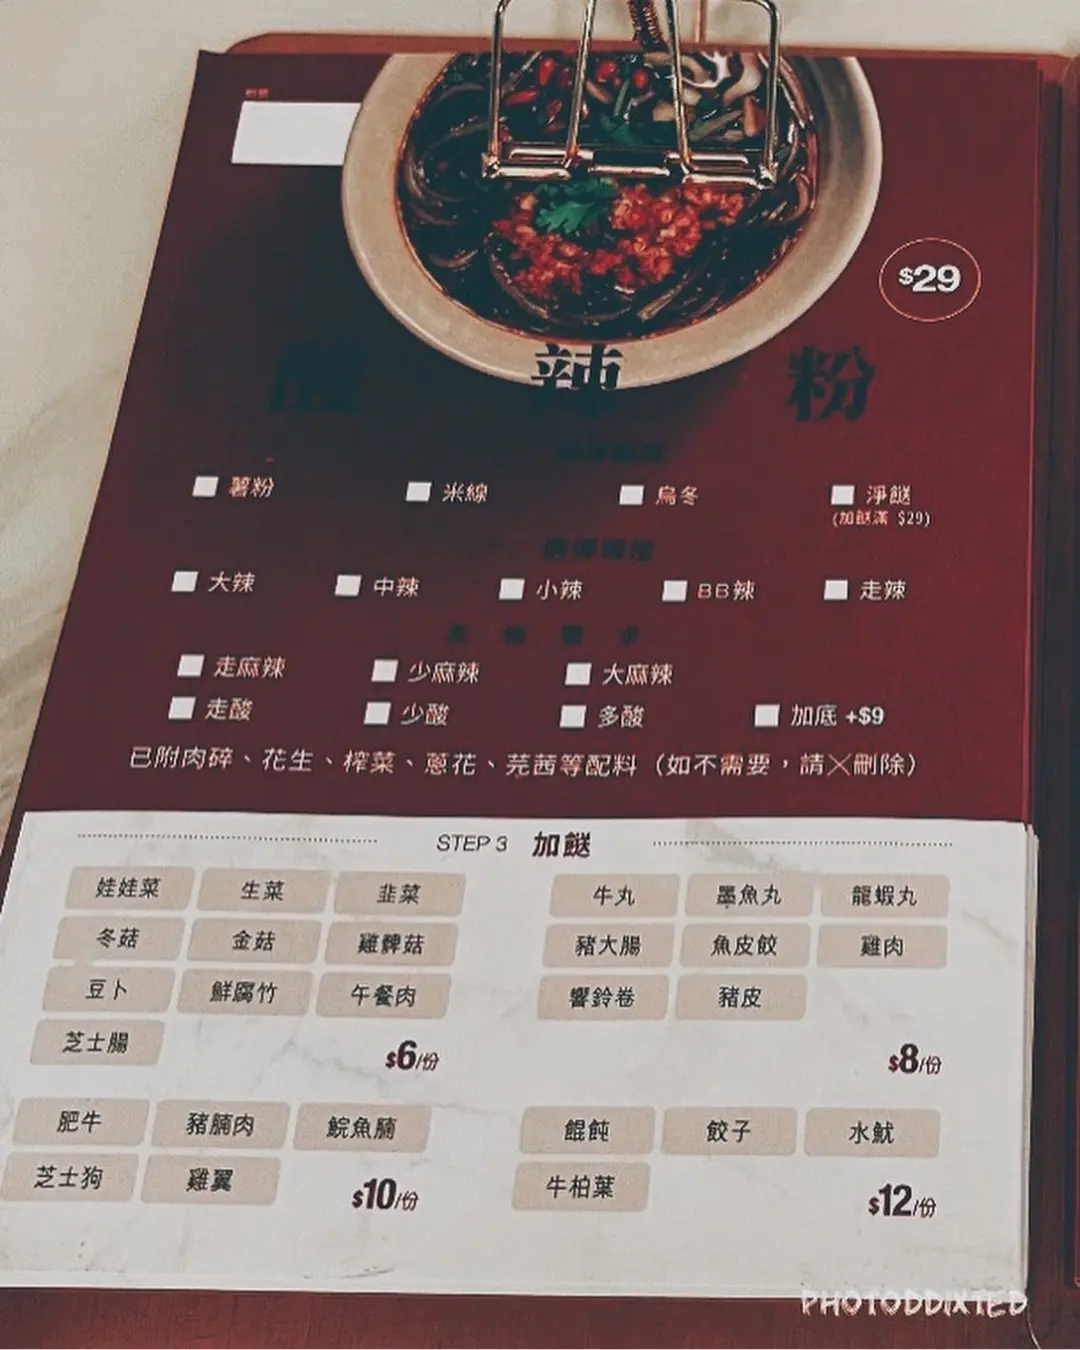 $29
辣 粉
薯粉 米線 烏冬 淨餸
(加餸滿 $29)
大辣 中辣 小辣 BB辣 走辣
走麻辣 少麻辣 大麻辣
走酸 少酸 多酸 加底 +$9
已附肉碎、花生、榨菜、蔥花、芫茜等配料（如不需要，請╳刪除）
STEP 3 加餸
娃娃菜 生菜 韭菜
冬菇 金菇 雞髀菇
豆卜 鮮腐竹 午餐肉
芝士腸
$6/份
牛丸 墨魚丸 龍蝦丸
豬大腸 魚皮餃 雞肉
響鈴卷 豬皮
$8/份
肥牛 豬腩肉 鯇魚腩
芝士狗 雞翼
$10/份
餛飩 餃子 水魷
牛柏葉
$12/份
PHOTODDIXTED